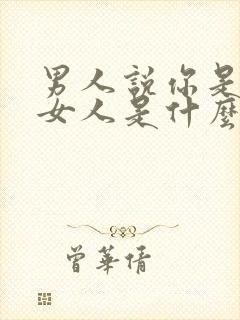 男人說你是
女人是什麼
曾華倩